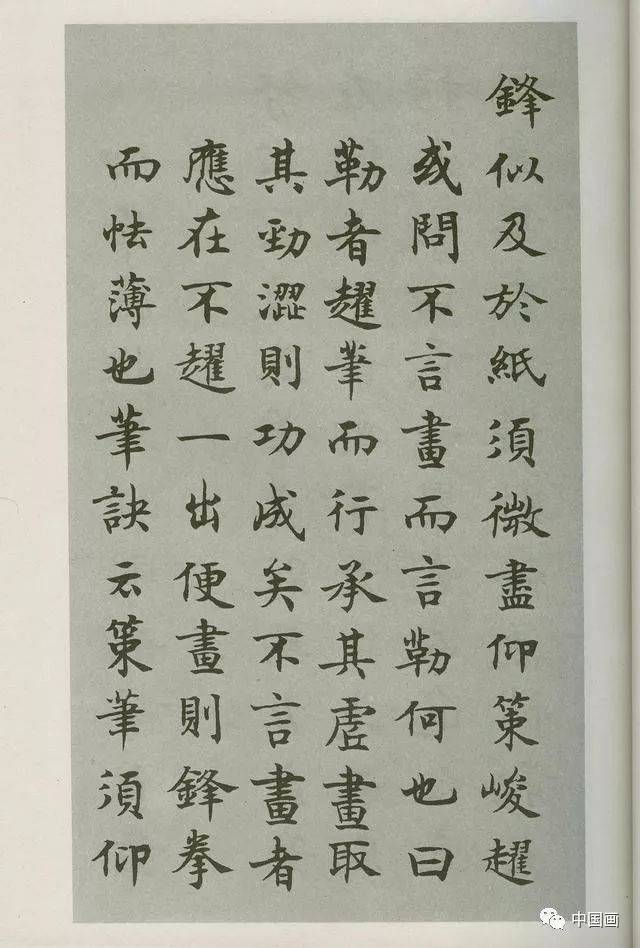 鋒似及於紙須微盡仰策峻趯
或問不言畫而言勒何也曰
勒者趯筆而行承其虛畫取
其勁澀則功成矣不言畫者
應在不趯一出便畫則鋒拳
而怯薄也筆訣云策筆須仰
中国画